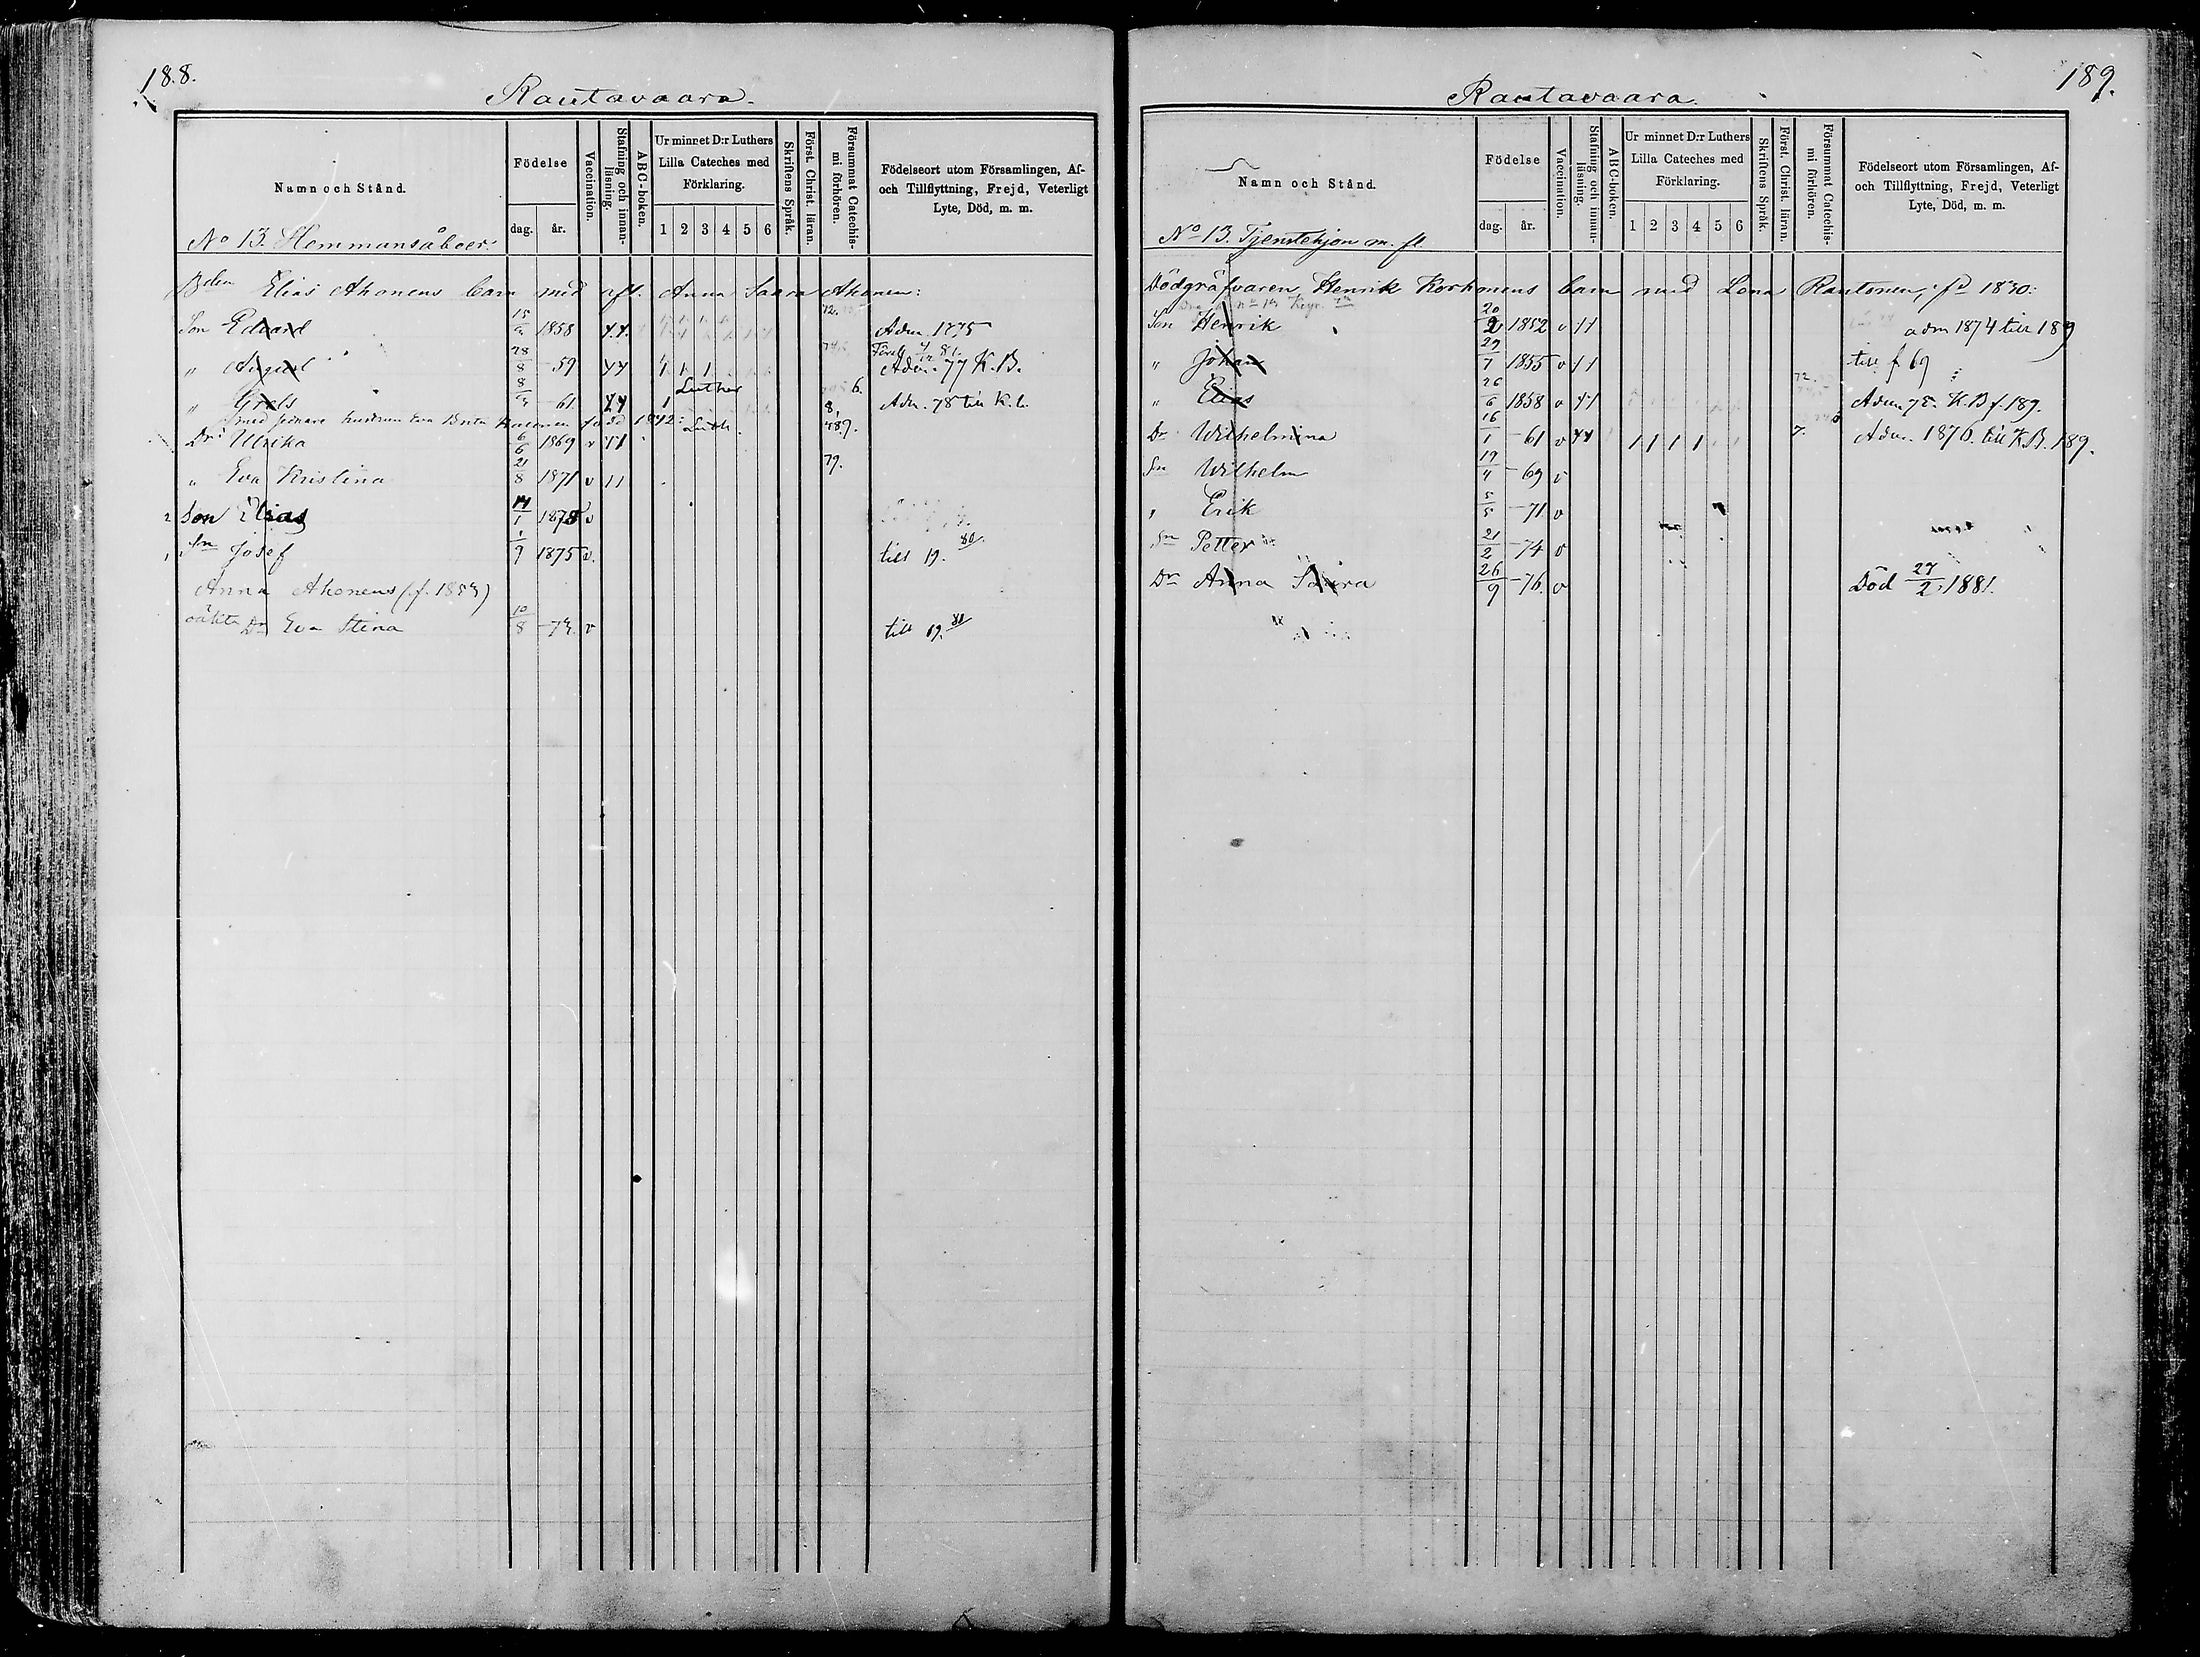 188.
Rautavaara.
Namn och Stånd.
Födelse
dag. år.
Vaccination.
Stafning och innanläsning.
ABC-boken.
Ur minnet D:r Luthers Lilla Cateches med Förklaring.
1 2 3 4 5 6
Skriftens Språk.
Först. Christ. läran.
Försummat Catechismi förhören.
Födelseort utom Församlingen, Af- och Tillflyttning, Frejd, Veterligt Lyte, Död, m. m.
No 13. Hemmansåboer:
Bden Elias Ahonens barn med afl. Anna Saara Ahonen:
Son Edvard 15 1858 Adm. 1875
" August 28/8 59 Adm. 77 K. B.
" Grels 8 61. 1 Luther 6. Adm. 78 till K. b.
med sednare hustrun Eva Brita 1842: Luth.
Dr Ulrika 6/6 1869 v 11
" Eva Kristina 21/8 1871 v 11 79.
2 Son Elias 14/1 1878 v
1 Sn Josef 1/9 1875 v. till 19. 80.
Anna Ahonens
oäkta Dr Eva Stina 10/8 v till 19. 80
189.
Rautavaara.
Namn och Stånd.
Födelse
dag. år.
Vaccination.
Stafning och innanläsning.
ABC-boken.
Ur minnet D:r Luthers Lilla Cateches med Förklaring.
1 2 3 4 5 6
Skriftens Språk.
Först. Christ. läran.
Försummat Catechismi förhören.
Födelseort utom Församlingen, Af- och Tillflyttning, Frejd, Veterligt Lyte, Död, m. m.
No 13. Tjenstehjon m. fl.
Dödgräfvaren Henrik Korhonens barn med Lena Rautonen, fd 1830:
Son Henrik 20/2 1852 v 11 adm 1874 till 189
" Johan 29/7 1855 v 11 till f 69
" Elias 26/6 1858 v 11 72. Adm 78. K. B f. 189.
Dr Wilhelmina 16/1 61 v 1 1 1 1 7. Adm. 1876. till K. B. 189.
Sn Wilhelm 19/4 69 v
" Erik 5/5 71. v
Sn Petter 21/2 74 v
Dr Anna Saara 26/9 76. v Död 27/2 1881.